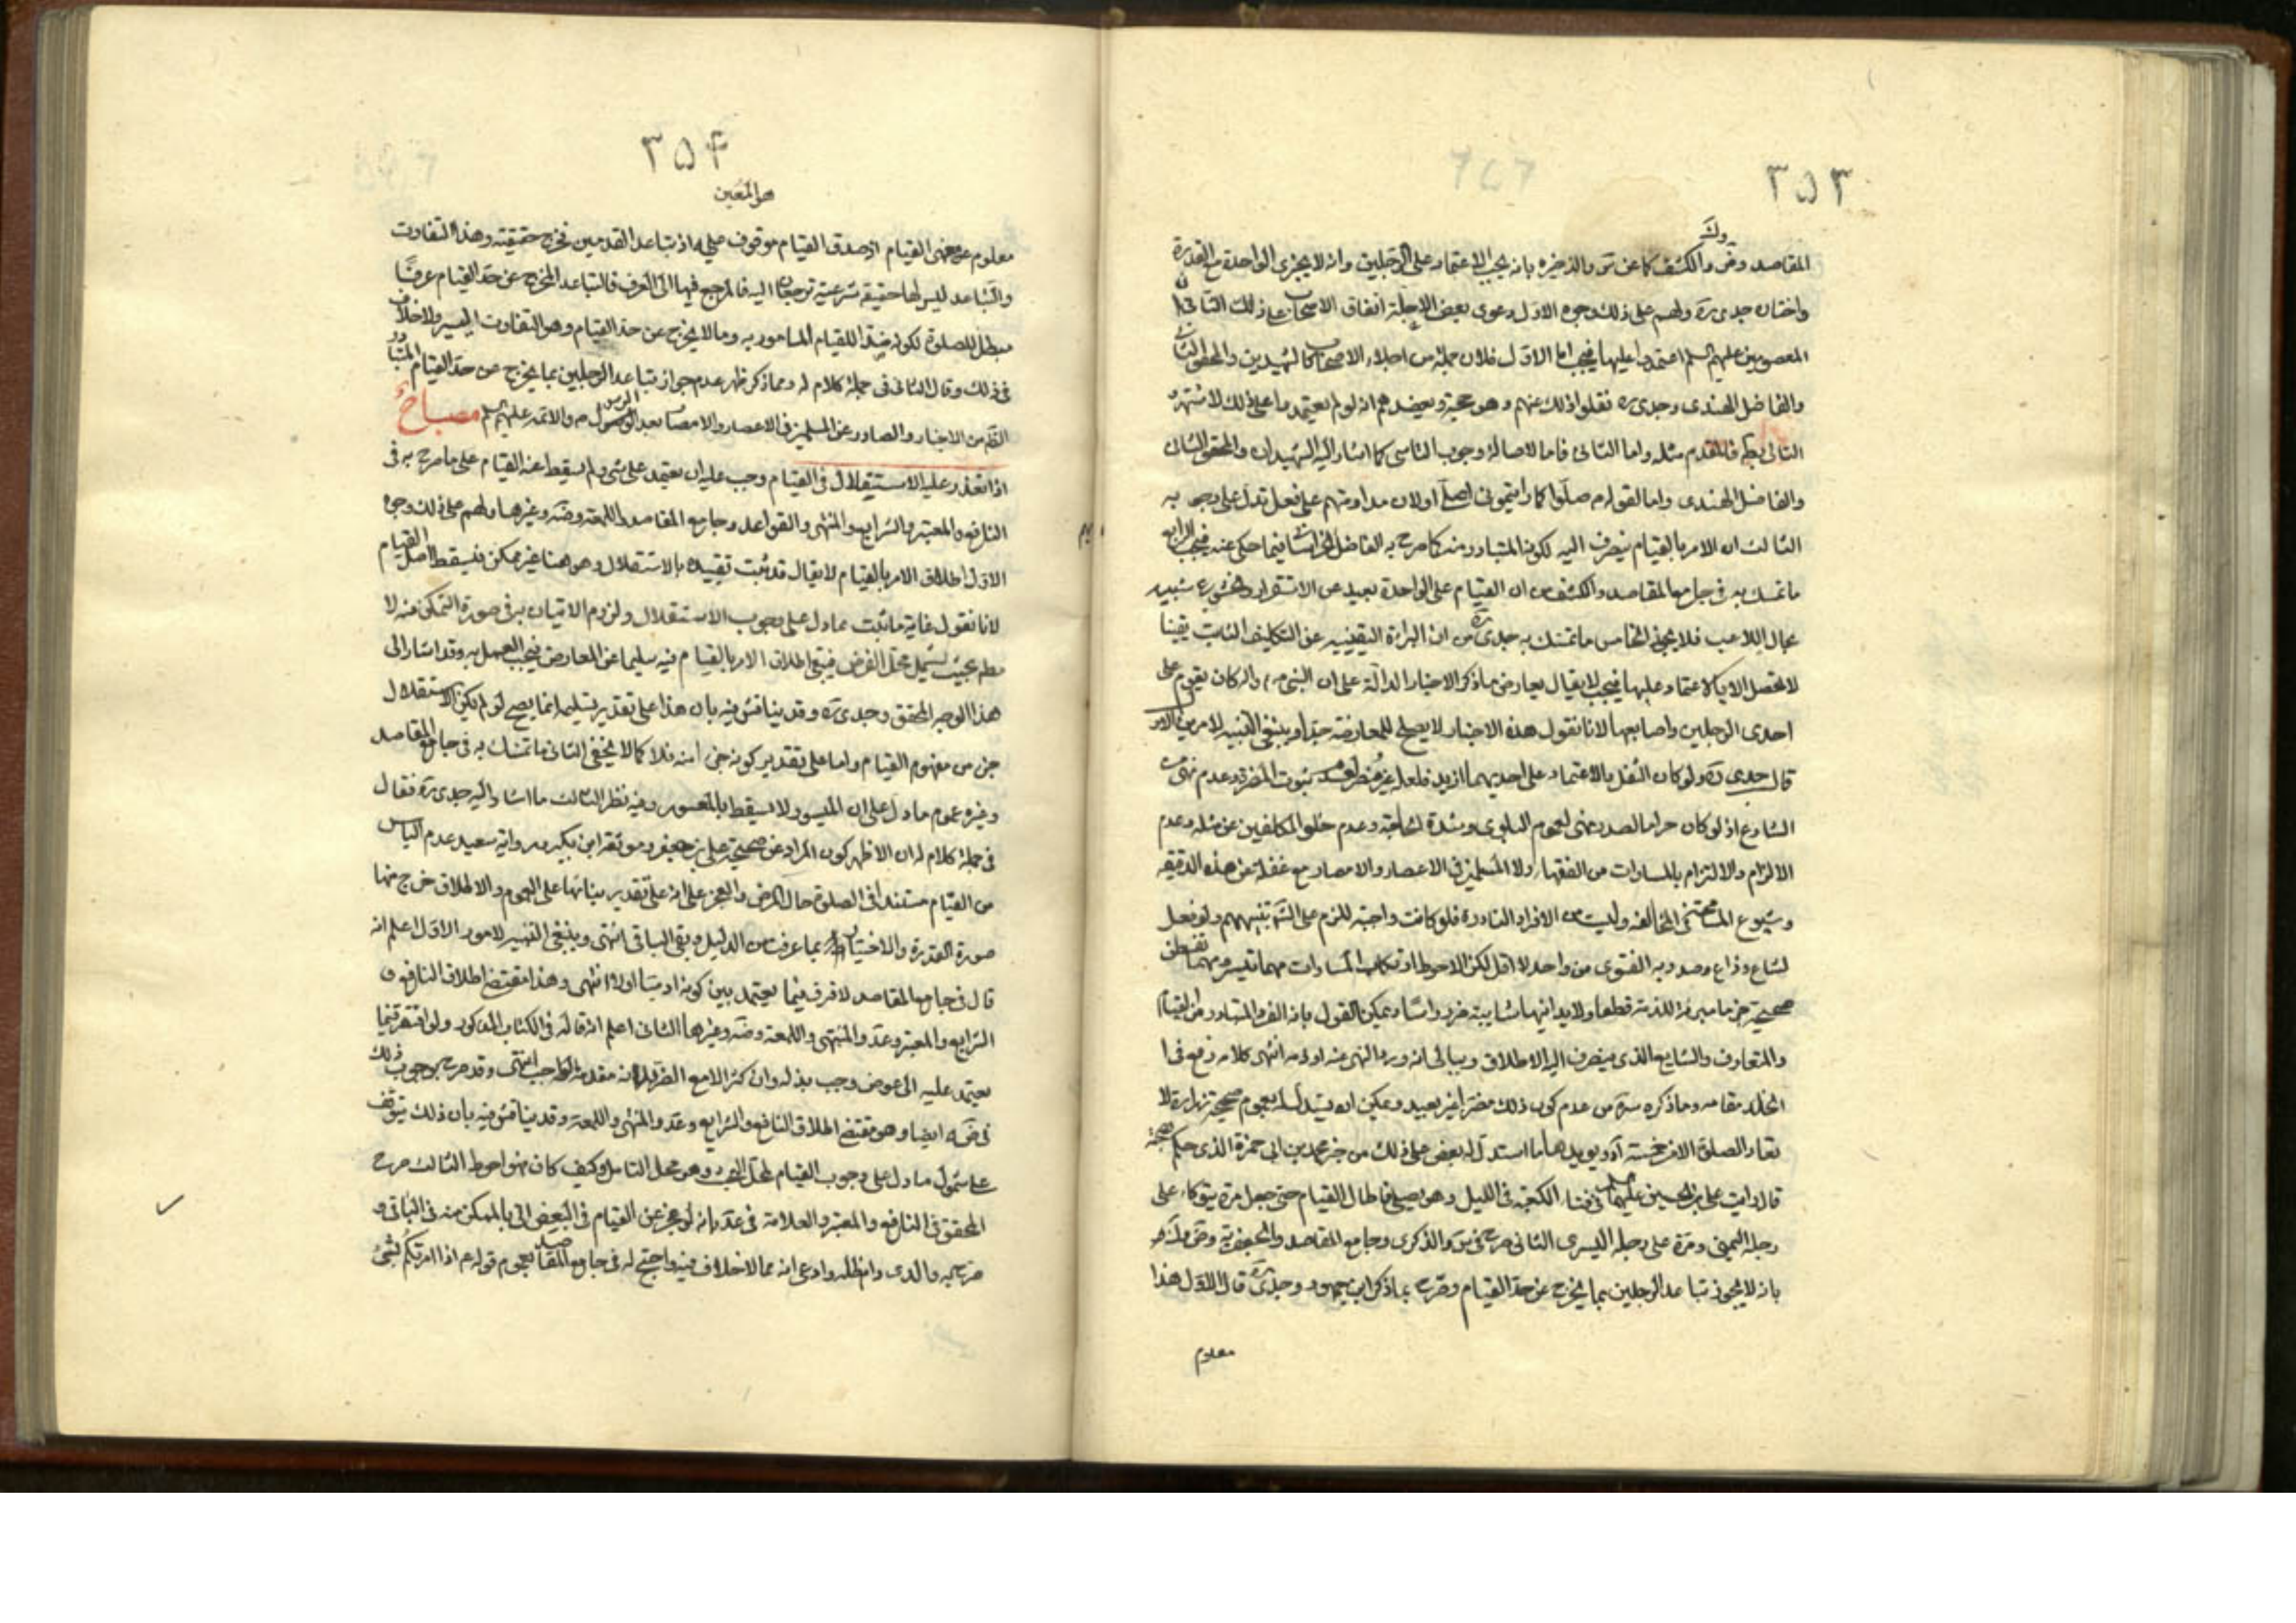 ٣٥٣
المقاصد وض والكشف كما عن س والذخيره بانه يجب الاعتماد على الرجلين وانه لا يجزى الواحدة مع القدرة
واختاره جدى ره ولهم على ذلك وجوه الاول دعوى بعض الاجلة اتفاق الاصحاب على ذلك الثانى ان
المعصومين عليهم السلم اعتمدوا عليهما فيجب اما الاول فلان جملة من اجلاء الاصحاب كالشهيدين والمحقق الثانى
والفاضل الهندى وجدى ره نقلوا ذلك عنهم وهو حجة ويعضدهم انه لو لم يعتمدوا على ذلك لاشتهر و
التالى بط فالمقدم مثله واما الثانى فلما لاصالة وجوب التاسى كما اشار اليه الشهيدان والمحقق الثانى
والفاضل الهندى واما لقوله م صلوا كما رايتمونى اصلى اولان مداومتهم على فعل تدل على وجوبه
الثالث ان الامر بالقيام ينصرف اليه لكونه المتبادر منه كما صرح به الفاضل فيما حكى عنه فيجب الرابع
ما تمسك به فى جامع المقاصد والكشف من ان القيام على الواحدة بعيد عن الاستقرار والخشوع شبيه
بحال اللاعب فلا يجوز الخامس ما تمسك به جدى ره من ان البراءة اليقينيه عن التكليف الثابت يقينا
لا تحصل الا بالاعتماد عليهما فيجب لا يقال يعارض ما ذكر الاخبار الدالة على ان النبى ص والـه كان يقوم على
احدى الرجلين واصابعها لانا نقول هذه الاخبار لا يصلح للمعارضة جدا وينبغى التنبيه لامرين الاول
قال جدى ره ولو كان الثقل بالاعتماد على احديهما ازيد فلعله غير مضر لعدم ثبوت المضرة وعدم نهى
الشارع اذ لو كان حراما لصدر عنى لعموم البلوى وشدة الحاجة وعدم خلو المكلفين عن مثله وعدم
الالزام والالتزام بالمساوات من الفقهاء ولا المسلمين فى الاعصار والامصار مع غفلة عن هذه الدقيقه
وشيوع المخالفه وليست من الافراد النادرة فلو كانت واجبه للزم على الشرع تنبيههم ولو فعل
لشاع وذاع وصدر به الفتوى من واحد لا اقل لكن الاحوط ارتكاب المساوات مهما تيسر ومهما تفطن
قطعا ولا بد وانهما شايبة ويمكن القول بانه الفرد المتبادر من القيام
والمتعارف والشايع الذى ينصرف اليه الاطلاق وببالى انه ورد النهى عنه انتهى كلامه رفع فى
الخلد مقامه وما ذكره سره من عدم كون ذلك مضرا غير بعيد ويمكن ان يستدل له بعموم صحيحة زرارة لا
تعاد الصلوة الا من خمسة آه ويؤيدها ما استدل له بعض على ذلك من خبر محمد بن ابى حمزة الذى حكم
قال رايت على بن الحسين عليهما السلم فى فناء الكعبة فى الليل وهو يصلى فاطال القيام حتى جعل مرة يتوكاء على
رجله اليمنى ومرة على رجله اليسرى الثانى صرح فى س والذكرى وجامع المقاصد والجعفرية وض
بانه لا يجوز تباعد الرجلين بما يخرج عن حد القيام وصرح بما ذكر ابن جمهور وجدى ره قال الاول هذا
معلوم
٣٥٤
هو المعين
معلوم عن معنى القيام اذ صدق القيام موقوف عليه اذ بتباعد القدمين تخرج حقيقته وهذا التفاوت
والتباعد ليس لها حقيقة شرعية ترجعان اليه فالمرجع فيها الى العرف فالتباعد المخرج عن حد القيام عرفا
مبطل للصلوة لكونه ضدا للقيام المامور به وما لا يخرج عن حد القيام وهو التفاوت اليسير ولا خلاف
فى ذلك وقال الثانى فى جملة كلام له ومما ذكر ظهر عدم جواز تباعد الرجلين بما يخرج عن حد القيام المتبادر
الظ من الاخبار والصادر عن المسلمين فى الاعصار والامصار بعد الرسول ص والائمة عليهم السلم مصباح
اذا تعذر عليه الاستقلال فى القيام وجب عليه ان يعتمد على شئ ولم يسقط عنه القيام على ما صرح به فى
النافع والمعتبر والشرايع والمنتهى والقواعد وجامع المقاصد واللمعة وضه وغيرها ولهم على ذلك وجوه
الاول اطلاق الامر بالقيام لا يقال قد ثبت تقييده بالاستقلال وهو هنا غير ممكن فيسقط اصل القيام
لانا نقول غاية ما ثبت مما دل على وجوب الاستقلال ولزوم الاتيان به فى صورة التمكن منه لا
مطم بحيث يشمل محل الفرض فيبقى اطلاق الامر بالقيام فيه سليما عن المعارض فيجب العمل به وقد اشار الى
هذا الوجه المحقق وجدى ره وقد يناقش فيه بان هذا على تقدير تسليمه انما يصح لو لم يكن الاستقلال
جزء من مفهوم القيام واما على تقدير كونه جزء امنه فلا كما لا يخفى الثانى ما تمسك به فى جامع المقاصد
وغيره عموم ما دل على ان الميسور لا يسقط بالمعسور وفيه نظر الثالث ما اشار اليه جدى ره فقال
فى جملة كلام له ان الاظهر كون المراد عن صحيحة على بن جعفر وموثقة ابن بكير ورواية سعيد عدم الباس
من القيام مستندا فى الصلوة حال المرض والعجز على انه على تقدير بنائها على العموم والاطلاق خرج منها
صورة القدرة والاختيار بما عرفت من الدليل وبقى الباقى انتهى وينبغى التنبيه لامور الاول اعلم انه
قال فى جامع المقاصد لا فرق فيما يعتمد بين كونه ادميا اولا انتهى وهذا مقتضى اطلاق النافع و
الشرايع والمعتبر وعد والمنتهى واللمعة وضه وغيرها الثانى اعلم انه قال فى الكتاب المذكور ولو افتقر فيما
يعتمد عليه الى عوض وجب بذله وان كثر الا مع الضرر لانه مقدمة الواجب انتهى وقد صرح بوجوب ذلك
فى ضه ايضا وهو مقتضى اطلاق النافع والشرايع وعد والمنتهى واللمعة وقد يناقش فيه بان ذلك يتوقف
على شمول ما دل على وجوب القيام لمحل البحث وهو محل التامل وكيف كان فهو احوط الثالث صرح
المحقق فى النافع والمعتبر والعلامة فى عد بانه لو عجز عن القيام فى البعض اتى بالممكن منه فى الباقى و
صرح به والدى دام ظله وادعى انه مما لا خلاف فيه واحتج له فى جامع المقاصد بعموم قوله ع اذا امرتكم بشئ